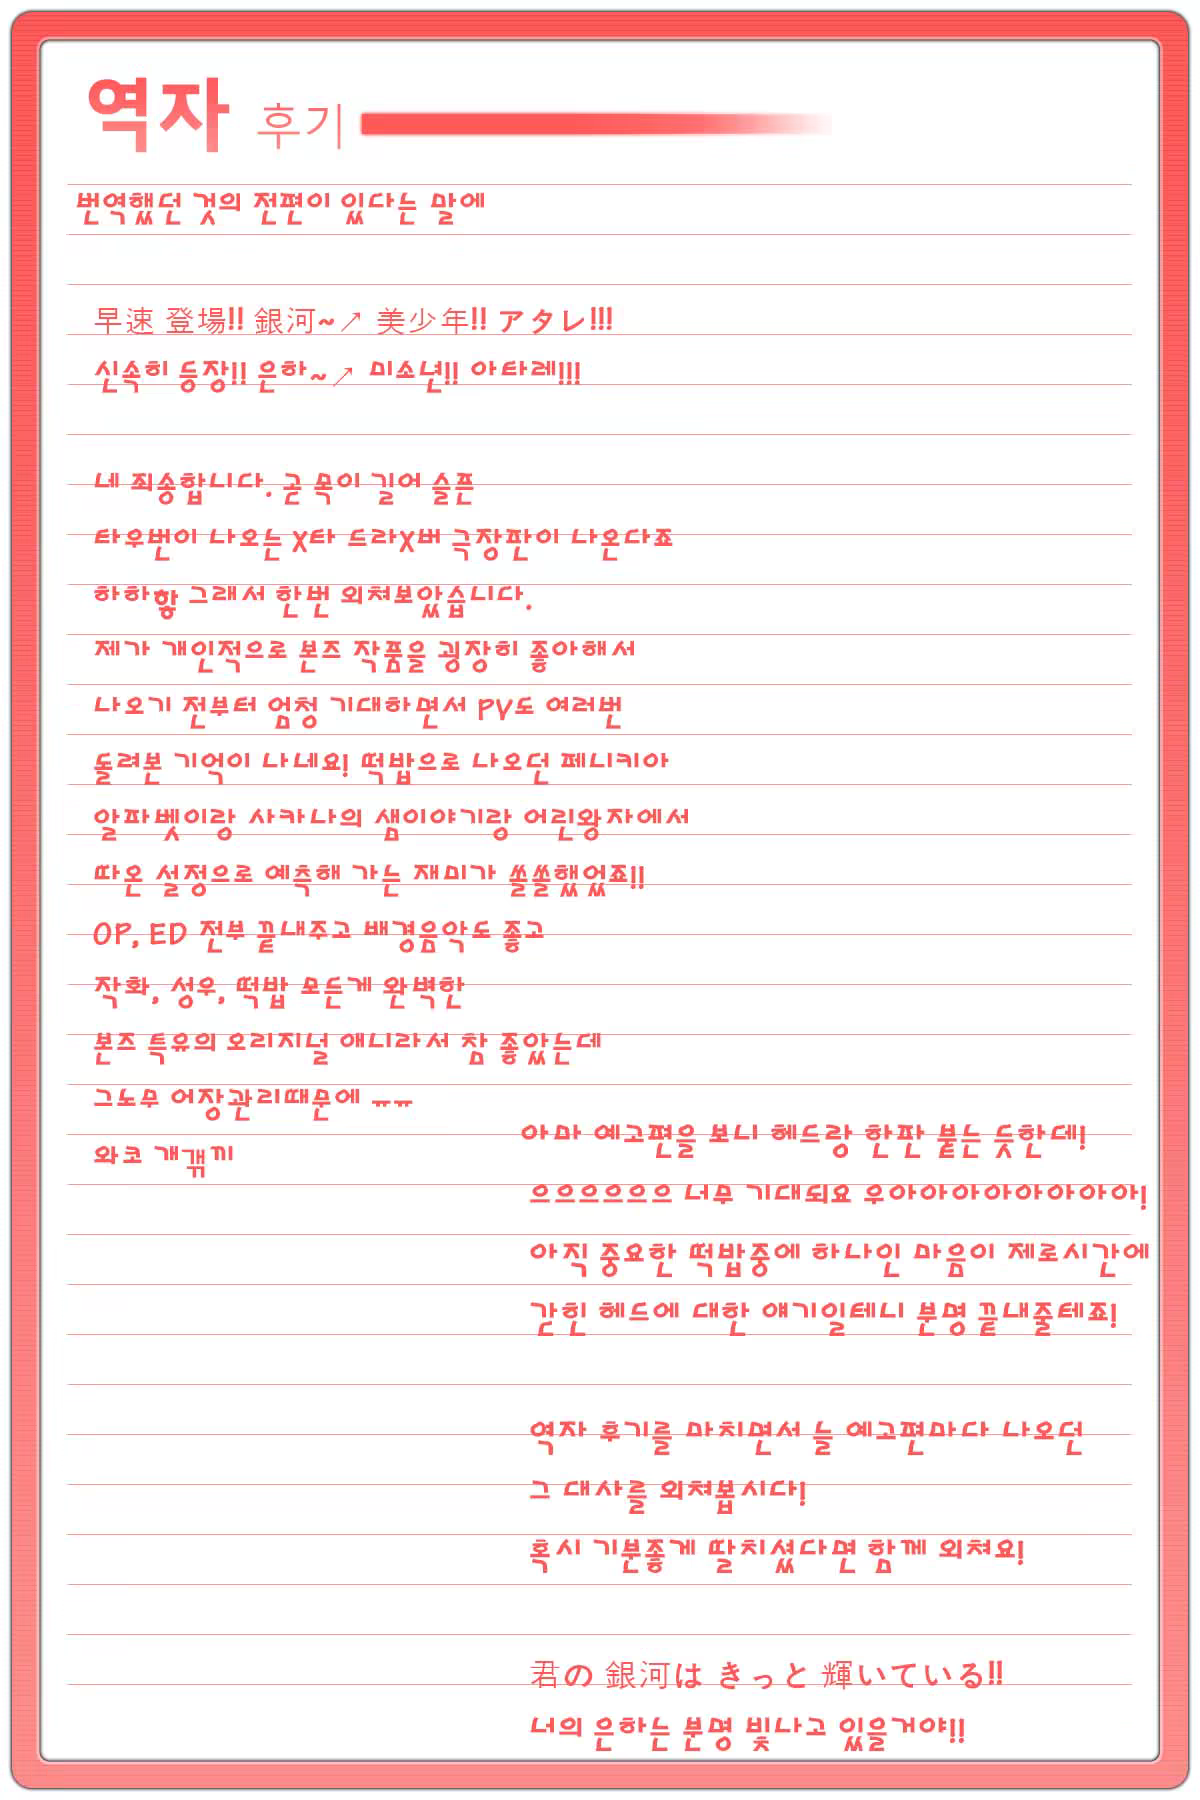 역자 후기
번역했던 것의 전편이 있다는 말에
早速 登場!! 銀河~↗ 美少年!! アタレ!!!
신속히 등장!! 은하~↗ 미소년!! 아타레!!!
네 죄송합니다. 곧 목이 길어 슬픈
타우번이 나오는 X타 드라X버 극장판이 나온다죠
하하핳 그래서 한번 외쳐보았습니다.
제가 개인적으로 본즈 작품을 굉장히 좋아해서
나오기 전부터 엄청 기대하면서 PV도 여러번
돌려본 기억이 나네요! 떡밥으로 나오던 페니키아
알파벳이랑 사카나의 샘이야기랑 어린왕자에서
따온 설정으로 예측해 가는 재미가 쏠쏠했었죠!!
OP, ED 전부 끝내주고 배경음악도 좋고
작화, 성우, 떡밥 모든게 완벽한
본즈 특유의 오리지널 애니라서 참 좋았는데
그노무 어장관리때문에 ㅠㅠ
와코 개갞끼
아마 예고편을 보니 헤드랑 한판 붙는 듯한데!
으으으으으으 너무 기대되요 우아아아아아아아아아!
아직 중요한 떡밥중에 하나인 마음이 제로시간에
갇힌 헤드에 대한 얘기일테니 분명 끝내줄테죠!
역자 후기를 마치면서 늘 예고편마다 나오던
그 대사를 외쳐봅시다!
혹시 기분좋게 딸치셨다면 함께 외쳐요!
君の 銀河は きっと 輝いている!!
너의 은하는 분명 빛나고 있을거야!!